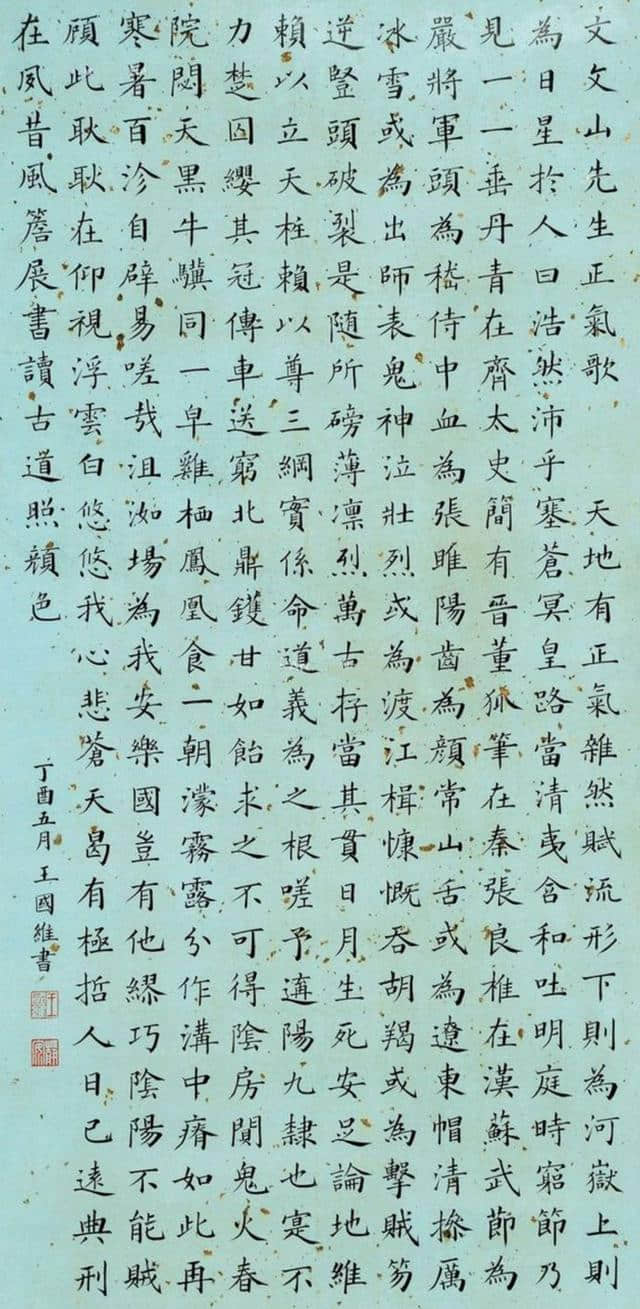 文文山先生正氣歌　天地有正氣雜然賦流形下則為河嶽上則
為日星於人曰浩然沛乎塞蒼冥皇路當清夷含和吐明庭時窮節乃
見一一垂丹青在齊太史簡有晉董狐筆在秦張良椎在漢蘇武節為
嚴將軍頭為嵇侍中血為張睢陽齒為顏常山舌或為遼東帽清操厲
冰雪或為出師表鬼神泣壯烈或為渡江楫慷慨吞胡羯或為擊賊笏
逆豎頭破裂是隨所磅薄凛烈萬古存當其貫日月生死安足論地維
賴以立天柱賴以尊三綱實係命道義為之根嗟予遘陽九隸也寔不
力楚囚纓其冠傳車送窮北鼎鑊甘如飴求之不可得陰房闃鬼火春
院閟天黑牛驥同一皁雞栖鳳凰食一朝濛霧露分作溝中瘠如此再
寒暑百沴自辟易嗟哉沮洳場為我安樂國豈有他繆巧陰陽不能賊
顧此耿耿在仰視浮雲白悠悠我心悲蒼天曷有極哲人日已遠典刑
在夙昔風簷展書讀古道照顏色
丁酉五月王國維書